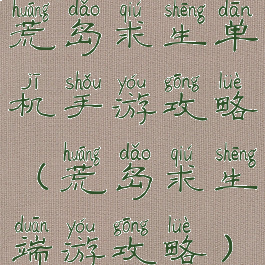 huāng dǎo qiú shēng dān
荒岛求生单
jī shǒu yóu gōng lüè
机手游攻略
huāng dǎo qiú shēng
(荒岛求生
duān yóu gōng lüè
端游攻略)